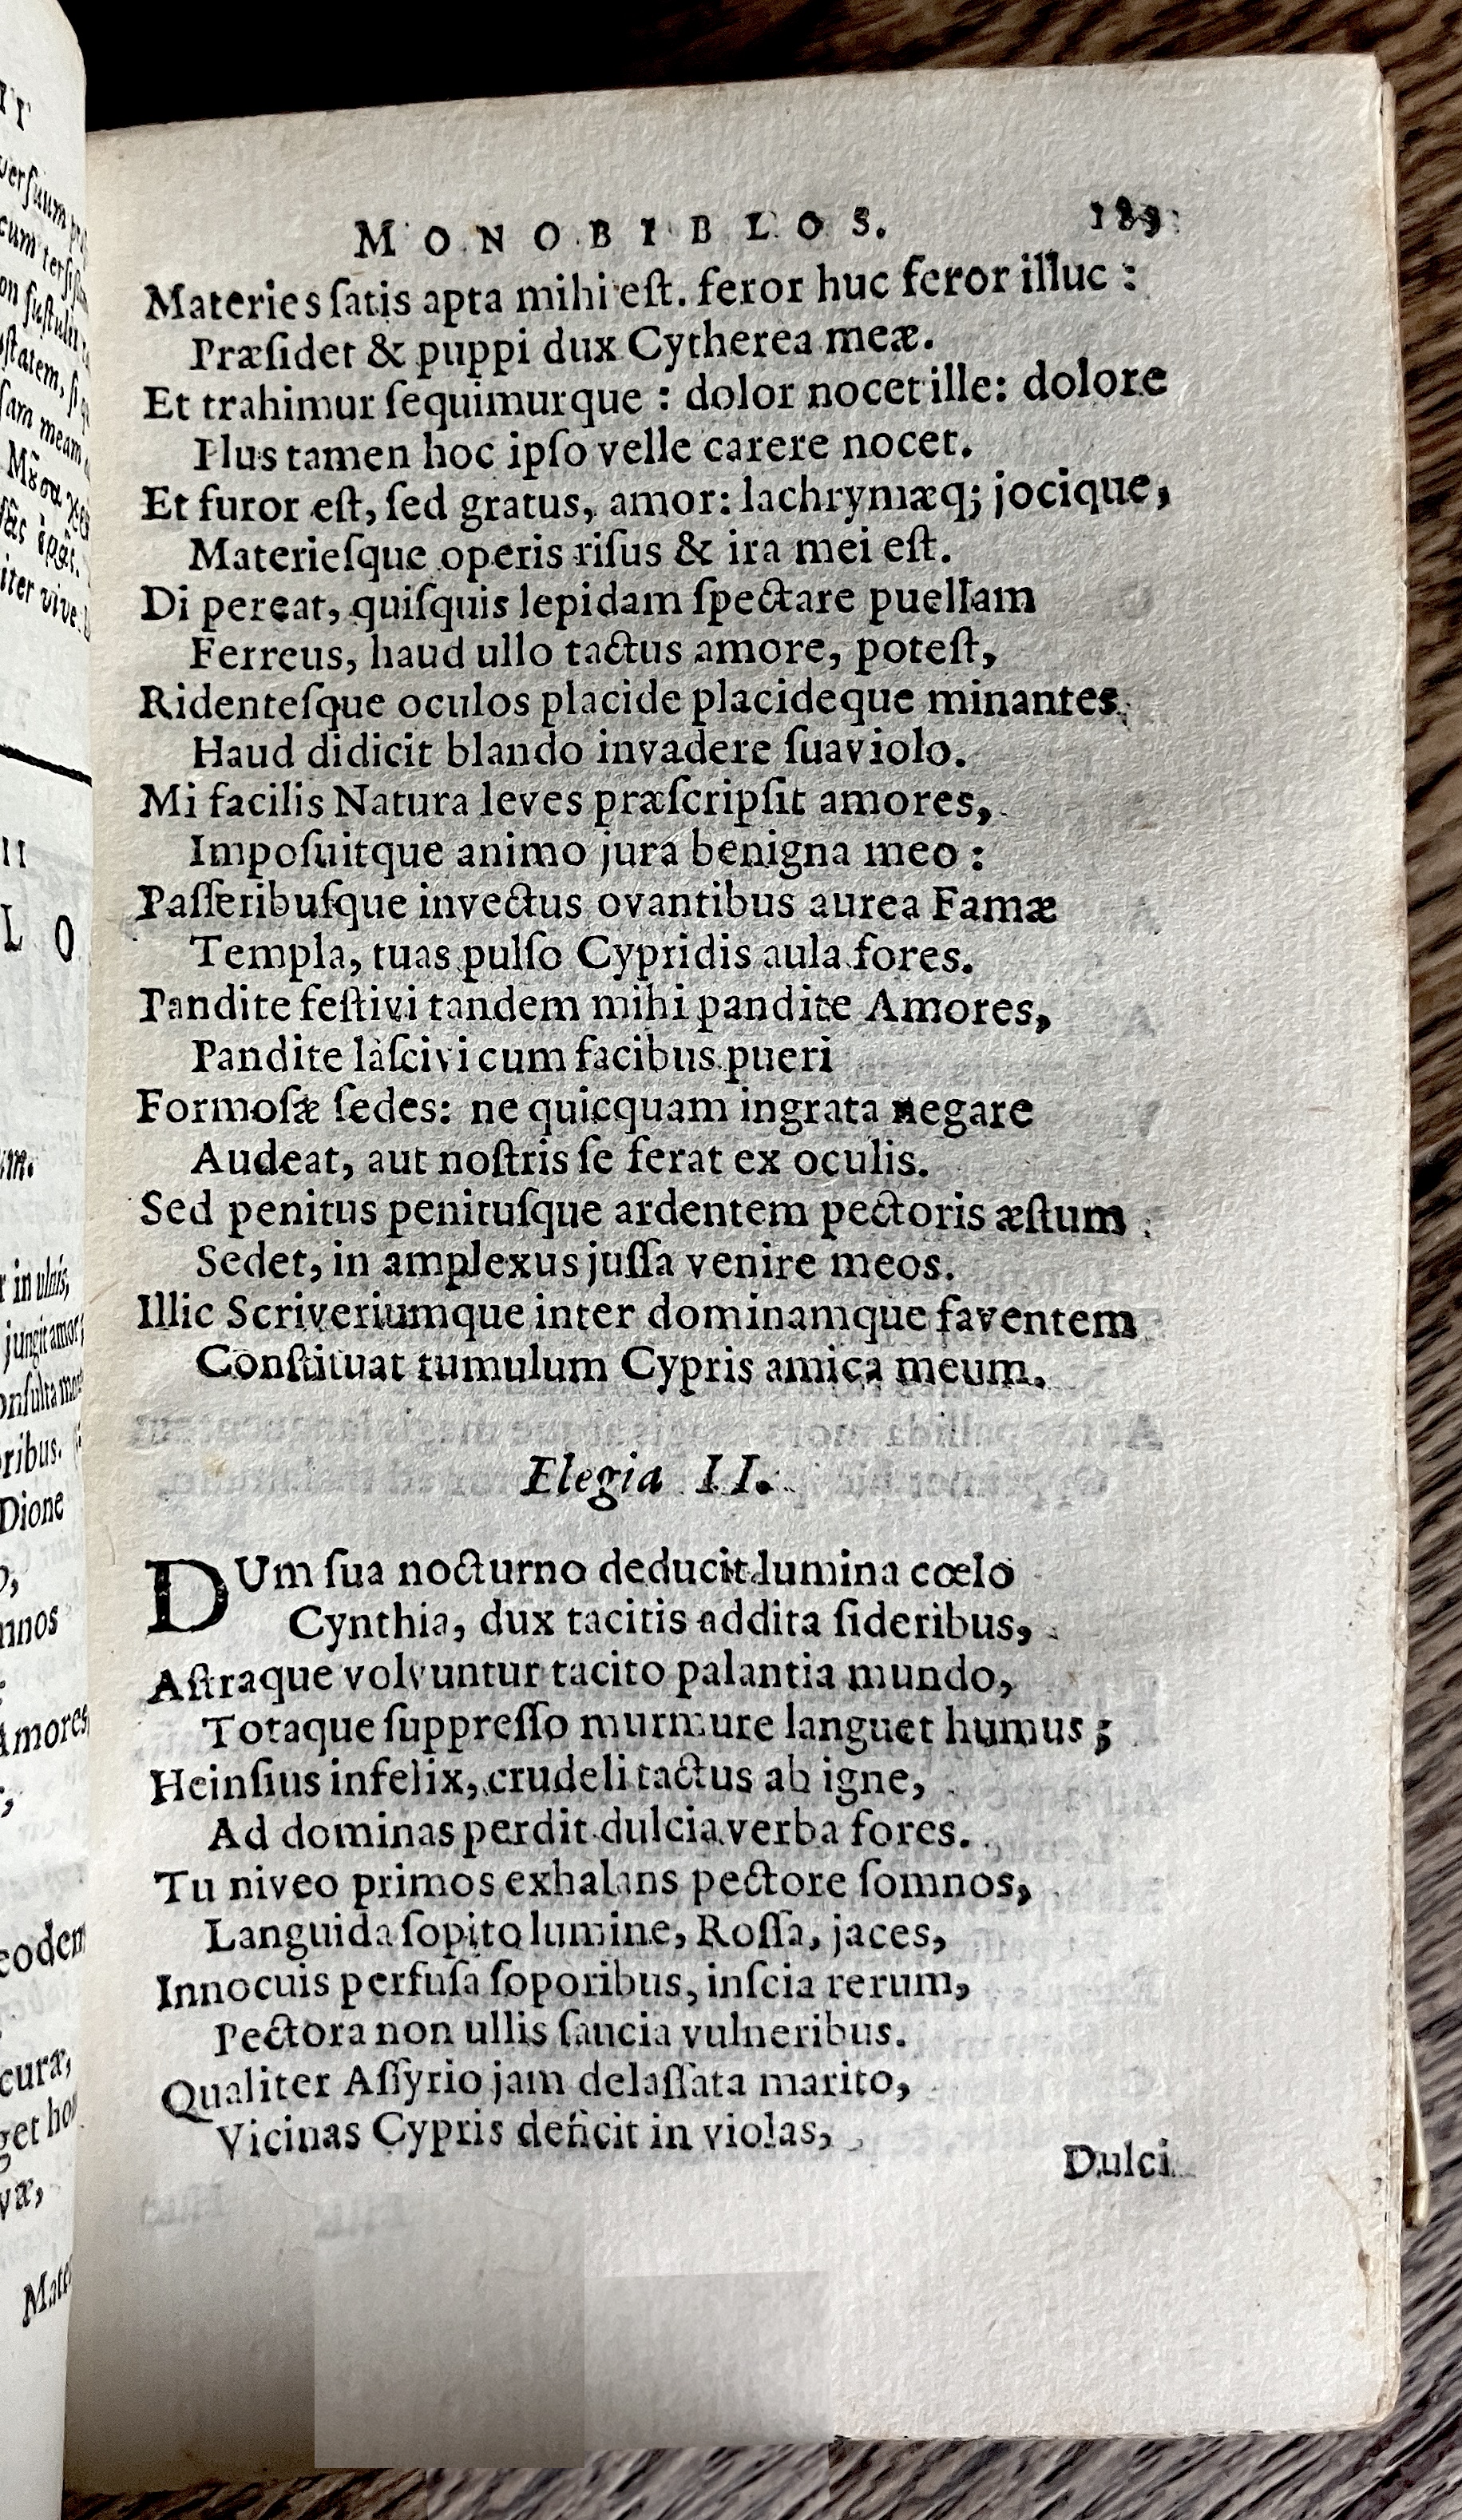 MONOBIBLOS. 189
Materies ſatis apta mihi eſt. feror huc feror illuc :
Præſidet & puppi dux Cytherea meæ.
Et trahimur ſequimurque : dolor nocet ille: dolore
Plus tamen hoc ipſo velle carere nocet.
Et furor eſt, ſed gratus, amor: lachrymæq; jocique,
Materieſque operis riſus & ira mei eſt.
Di pereat, quiſquis lepidam ſpectare puellam
Ferreus, haud ullo tactus amore, poteſt,
Ridenteſque oculos placide placideque minantes,
Haud didicit blando invadere ſuaviolo.
Mi facilis Natura leves præſcripſit amores,
Impoſuitque animo jura benigna meo :
Paſſeribuſque invectus ovantibus aurea Famæ
Templa, tuas pulſo Cypridis aula fores.
Pandite feſtivi tandem mihi pandite Amores,
Pandite laſcivi cum facibus pueri
Formoſæ ſedes: ne quicquam ingrata negare
Audeat, aut noſtris ſe ferat ex oculis.
Sed penitus penituſque ardentem pectoris æſtum
Sedet, in amplexus juſſa venire meos.
Illic Scriveriumque inter dominamque faventem
Conſtituat tumulum Cypris amica meum.
Elegia II.
DUm ſua nocturno deducit lumina cœlo
Cynthia, dux tacitis addita ſideribus,
Aſtraque volvuntur tacito palantia mundo,
Totaque ſuppreſſo murmure languet humus ;
Heinſius infelix, crudeli tactus ab igne,
Ad dominas perdit dulcia verba fores.
Tu niveo primos exhalans pectore ſomnos,
Languida ſopito lumine, Roſſa, jaces,
Innocuis perfuſa ſoporibus, inſcia rerum,
Pectora non ullis ſaucia vulneribus.
Qualiter Aſſyrio jam delaſſata marito,
Vicinas Cypris deficit in violas,
Dulci